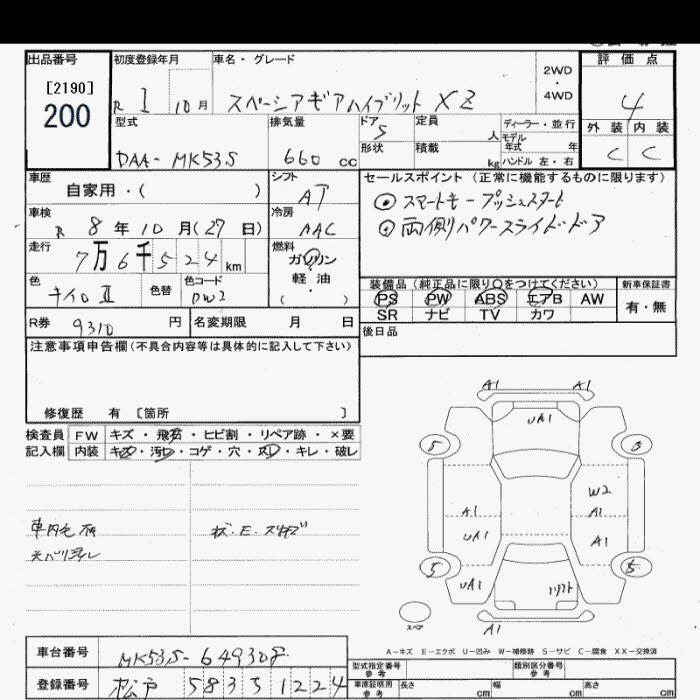 出品番号
[2190]
200
初度登録年月
R 1 10 月
車名・グレード
スペーシアギアハイブリット XZ
2WD
・
4WD
評価点
4
外装 内装
C C
型式
DAA-MK53S
排気量
660 cc
ドア 5
形状
定員 人
積載 kg
ディーラー・並行
モデル
年式 年
ハンドル 左・右
車歴
自家用・( )
シフト
AT
車検
R 8 年 10 月(27 日)
冷房
AAC
走行
7万6千524 km
燃料
ガソリン
・
軽油
( ・ )
色
キイロⅡ
色替
色コード
DW2
R券 9310 円
名変期限 月 日
セールスポイント (正常に機能するものに限ります)
⊙ スマートキー プッシュスタート
⊙ 両側パワースライドドア
装備品 (純正品に限り○をつけてください)
PS PW ABS エアB AW
SR ナビ TV カワ
新車保証書
有・無
後日品
注意事項申告欄(不具合内容等は具体的に記入して下さい)
修復歴 有 〔箇所 〕
検査員
記入欄
FW キズ・飛石・ヒビ割・リペア跡・×要
内装 キズ・汚レ・コゲ・穴・スレ・キレ・破レ
A1 A1
UA1
5 6
W2
A1 A1
UA1 A1
5 5
UA1
A1
スペア
A-キズ E-エクボ U-凹み W-補修跡 S-サビ C-腐食 XX-交換済
車台番号 MK53S-649308
登録番号 松戸 5835 1224
型式指定番号
参考
類別区分番号
参考
車庫証明用
参考
長さ cm 幅 cm 高さ cm